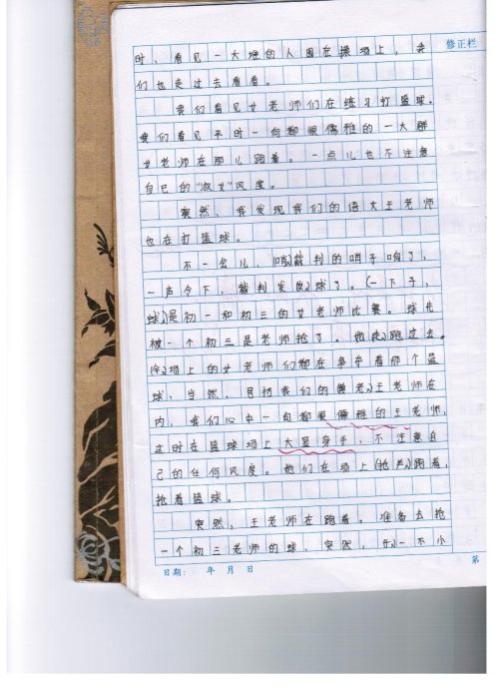 修正栏
时，看见一大堆的人围在操场上，我
们也走过去看看。
我们看见女老师们在练习打篮球，
我们看见平时一向都很儒雅的一大群
女老师在那儿跑着。一点儿也不注意
自己的“淑女”风度。
突然，我发现我们的语文王老师
也在打篮球。
不一会儿，裁判的哨子响了，
一声令下，裁判发球了。（一下子，
球）是初一和初三的女老师比赛。球先
被一个初三老师抢了。跑过去。
场上的女老师们都在争夺着那个篮
球，当然，包括我们的王老师在
内，我们心中一向都儒雅的王老师，
这时在篮球场上大显身手，不注意自
己的任何风度。她们在场上跑着，
抢着篮球。
突然，王老师在跑着。准备去抢
一个初三老师的球，突然，一不小
日期： 年 月 日
第